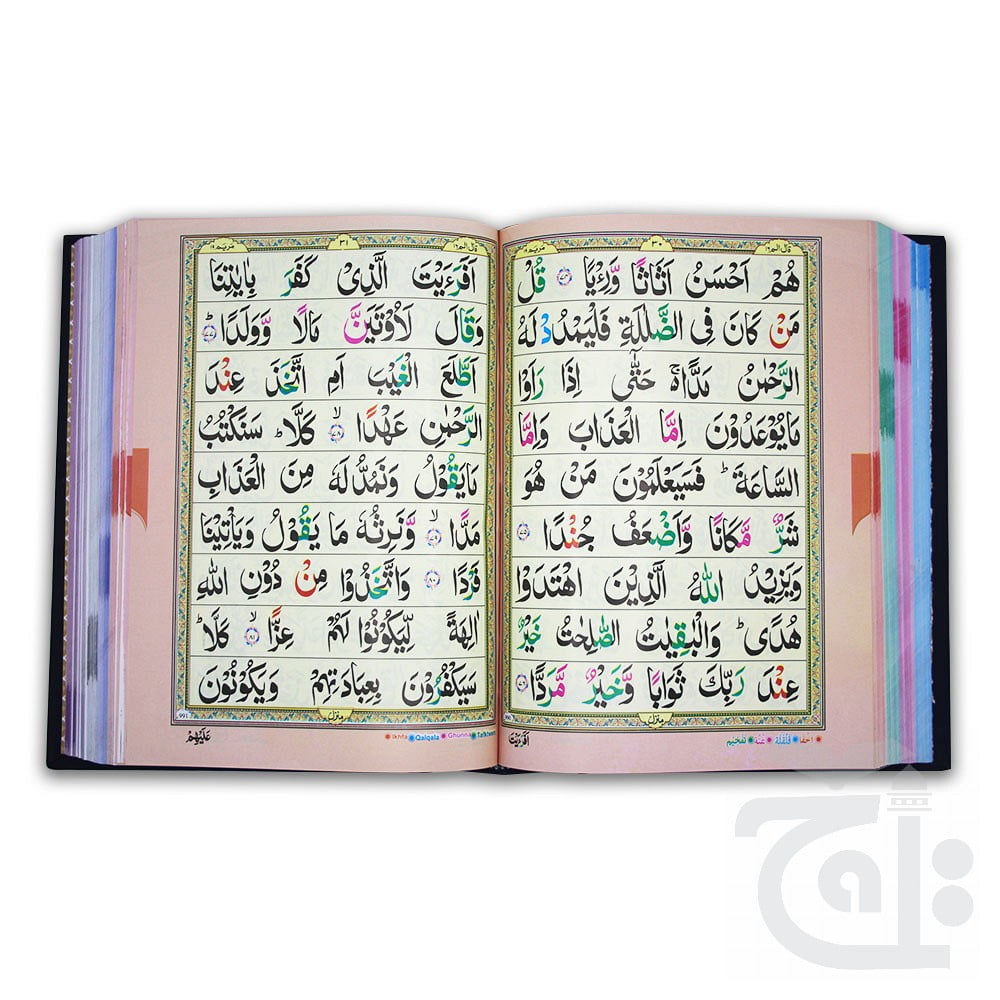 قال الم ۱۶
۳۰
مریم ۱۹
هُمْ اَحْسَنُ اَثَاثًا وَّرِءْيًا ﴿۷۴﴾ قُلْ
مَنْ كَانَ فِی الضَّلٰلَةِ فَلْيَمْدُدْ لَهُ
الرَّحْمٰنُ مَدًّا ۚ حَتّٰۤی اِذَا رَاَوْا
مَا يُوْعَدُوْنَ اِمَّا الْعَذَابَ وَاِمَّا
السَّاعَةَ ؕ فَسَيَعْلَمُوْنَ مَنْ هُوَ
شَرٌّ مَّكَانًا وَّاَضْعَفُ جُنْدًا ﴿۷۵﴾
وَيَزِيْدُ اللّٰهُ الَّذِيْنَ اهْتَدَوْا
هُدًی ؕ وَالْبٰقِيٰتُ الصّٰلِحٰتُ خَيْرٌ
عِنْدَ رَبِّكَ ثَوَابًا وَّخَيْرٌ مَّرَدًّا ﴿۷۶﴾
منزل
اَفَرَءَيْتَ
اخفا قلقلہ غنہ تفخیم
قال الم ۱۶
۳۱
مریم ۱۹
اَفَرَءَيْتَ الَّذِیْ كَفَرَ بِاٰيٰتِنَا
وَقَالَ لَاُوْتَيَنَّ مَالًا وَّوَلَدًا ﴿۷۷﴾ؕ
اَطَّلَعَ الْغَيْبَ اَمِ اتَّخَذَ عِنْدَ
الرَّحْمٰنِ عَهْدًا ﴿۷۸﴾ۙ كَلَّا ؕ سَنَكْتُبُ
مَا يَقُوْلُ وَنَمُدُّ لَهٗ مِنَ الْعَذَابِ
مَدًّا ﴿۷۹﴾ۙ وَّنَرِثُهٗ مَا يَقُوْلُ وَيَاْتِيْنَا
فَرْدًا ﴿۸۰﴾ وَاتَّخَذُوْا مِنْ دُوْنِ اللّٰهِ
اٰلِهَةً لِّيَكُوْنُوْا لَهُمْ عِزًّا ﴿۸۱﴾ۙ كَلَّا ؕ
سَيَكْفُرُوْنَ بِعِبَادَتِهِمْ وَيَكُوْنُوْنَ
منزل
991
عَلَيْهِمْ
Ikhfa Qalqala Ghunna Tafkheem
تاج